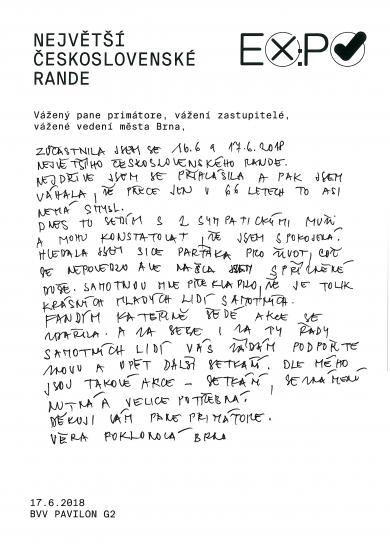 NEJVĚTŠÍ
ČESKOSLOVENSKÉ
RANDE
EXPO
Vážený pane primátore, vážení zastupitelé,
vážené vedení města Brna,
ZÚČASTNILA JSEM SE 16.6 A 17.6.2018
NEJVĚTŠÍHO ČESKOSLOVENSKÉHO RANDE.
NEJDŘÍVE JSEM SE PŘIHLÁSILA A PAK JSEM
VÁHALA, ŽE PŘECE JEN V 66 LETECH TO ASI
NEMÁ SMYSL.
DNES TU SEDÍM S 2 SYMPATICKÝMI MUŽI
A MOHU KONSTATOVAT, ŽE JSEM SPOKOJENÁ.
HLEDALA JSEM SICE PARŤÁKA PRO ŽIVOT, COŽ
SE NEPOVEDLO ALE NAŠLA JSEM SPŘÍZNĚNÉ
DUŠE. SAMOTNOU MNE PŘEKVAPILO, ŽE JE TOLIK
KRÁSNÝCH MLADÝCH LIDÍ SAMOTNÝCH.
FANDÍM KATEŘINĚ BEDĚ AKCE SE
VYDAŘILA. A ZA SEBE I ZA TY ŘADY
SAMOTNÝCH LIDÍ VÁS ŽÁDÁM PODPOŘTE
ZNOVU A OPĚT DALŠÍ SETKÁNÍ. DLE MÉHO
JSOU TAKOVÉ AKCE – SETKÁNÍ, SEZNÁMENÍ
NUTNÁ A VELICE POTŘEBNÁ.
DĚKUJI VÁM PANE PRIMÁTORE.
VĚRA BRNO
17.6.2018
BVV PAVILON G2